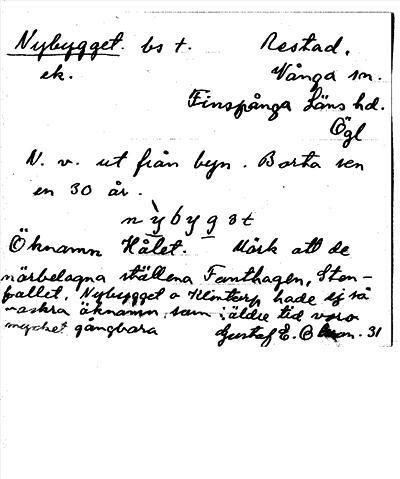 Nybygget. bs t. Restad.
ek. Vånga sn.
Finspånga Läns hd.
Ögl
N. v. ut från byn. Borta sen
en 30 år.
nybygət
Öknamn Hålet. Märk att de
närbelägna ställena Fanthagen, Sten-
fallet, Nybygget o Klintorp hade ej så
vackra öknamn, som i äldre tid voro
mycket gångbara Gustaf E. . 31